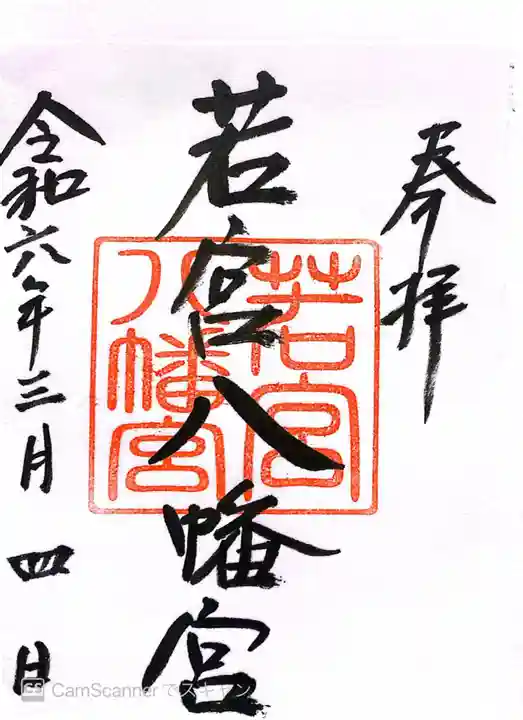 奉拝
若宮八幡宮
若宮
八幡宮
令和六年三月四日
CS CamScannerでスキャン